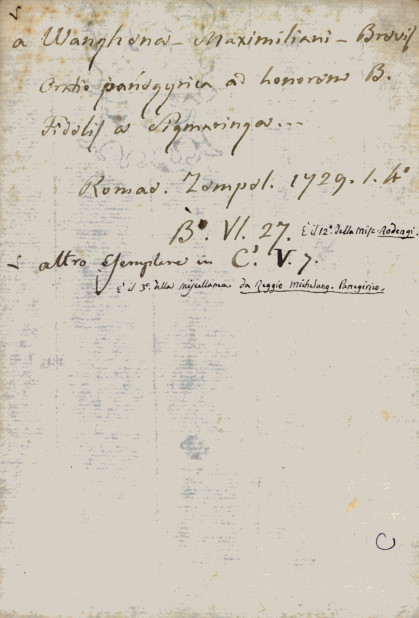 a Wanghena - Maximiliani - Brevis
Oratio panegyrica ad honorem B.
Fidelis a Sigmaringa...
Romae. Zempel. 1729. 1. 4°
B° VI. 27. È il 12° della Misc. Rodengi.
altro esemplare in C° V. 7.
È il 3° della miscellanea da Reggio Michelang. Panegirico.
C